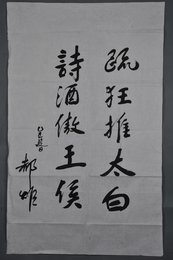 疏狂推太白
詩酒傲王侯
郝雄